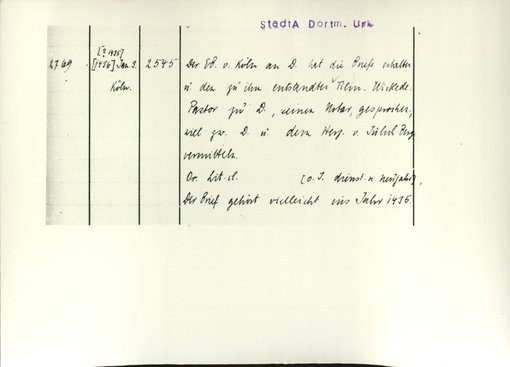 StadtA Dortm. Urk
[? 1435]
2769 [1436] Jan 3. 2545 Der EB. v. Köln an D. hat die Briefe erhalten
Köln. u den zu ihm entsandten Tilm. Wickede.
Pastor zu D., seinen Notar, gesprochen,
will zw. D. u dem Herz. v. Jülich Berg
vermitteln.
Or. Lit. cl. [o. J. dienst. n. neujahr].
Der Brief gehört vielleicht ins Jahr 1435.